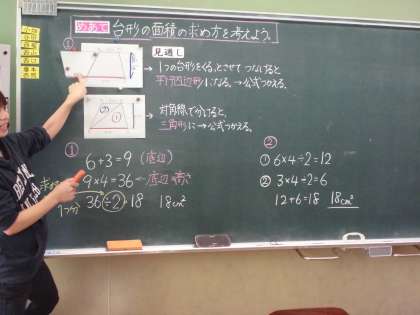 めあて 台形の面積の求め方を考えよう
①
見通し
→1つの台形をくるっとさせてつなげると、
平行四辺形になる。→公式つかえる。
対角線で分けると、
三角形に→公式つかえる。
②
①
①
6+3=9(底辺)
9×4=36←底辺×高さ
1つ分 36÷2=18 18cm²
②
① 6×4÷2=12
② 3×4÷2=6
12+6=18 18cm²